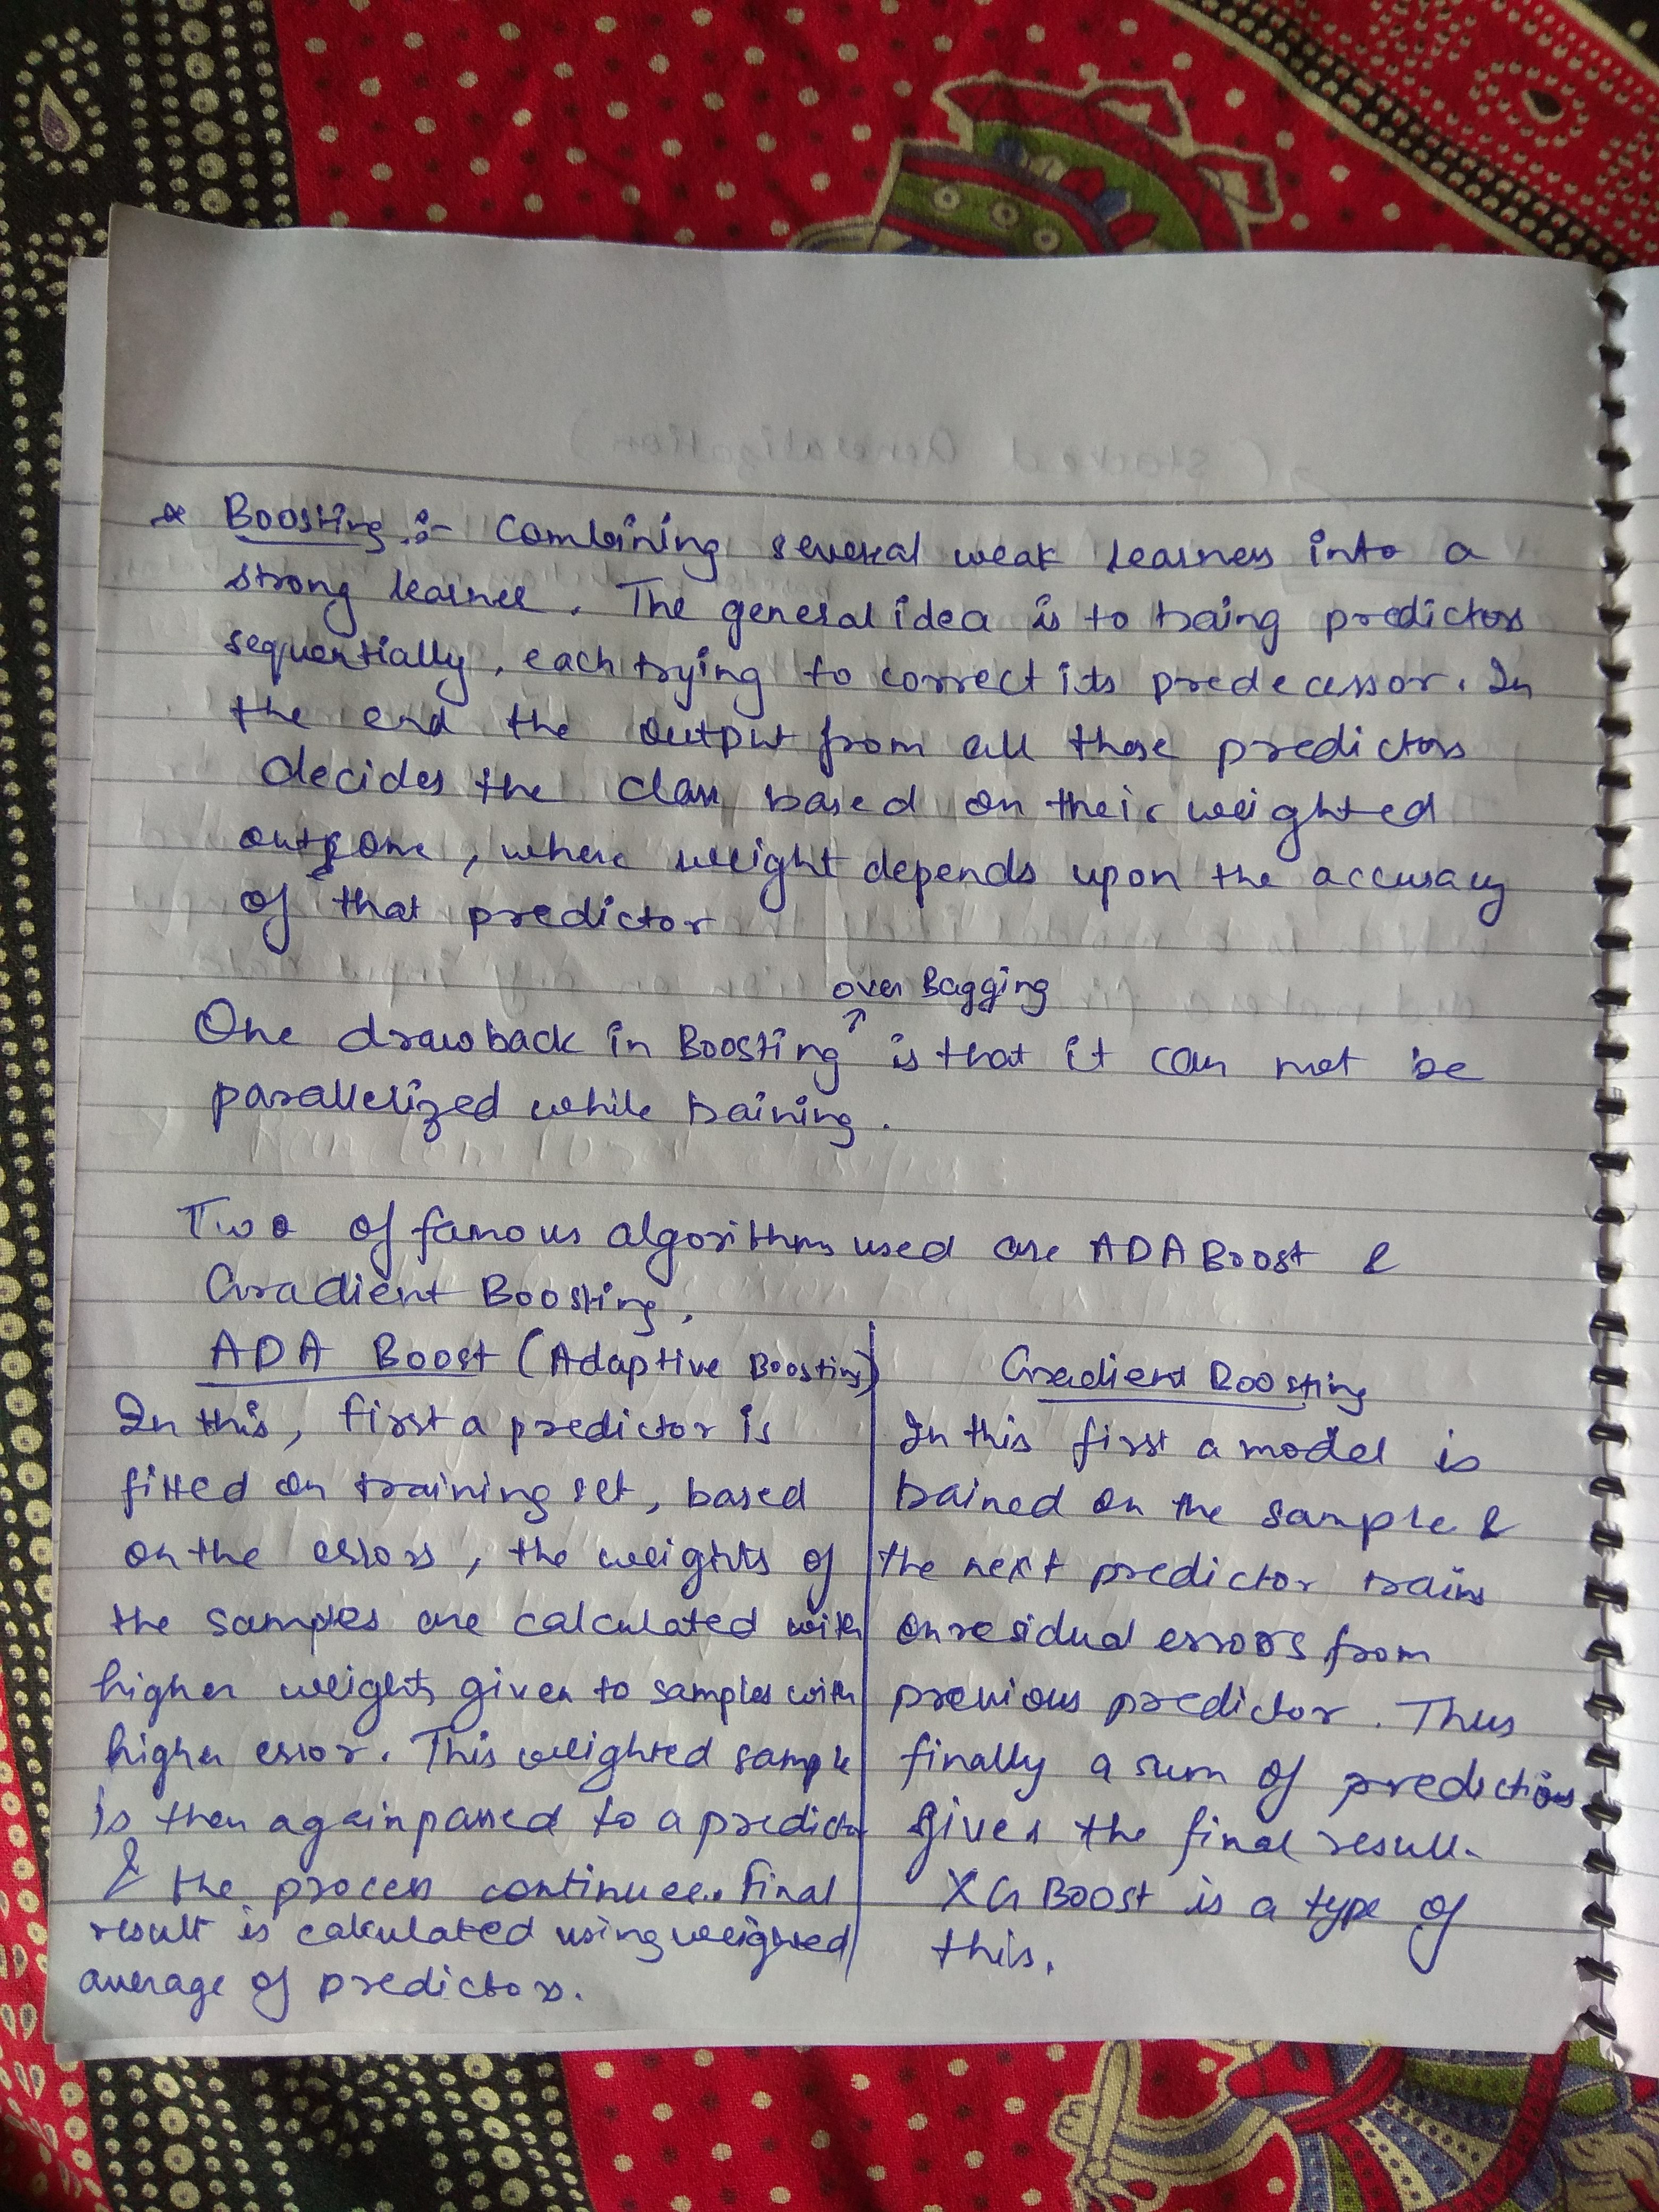 * Boosting :- Combining several weak learners into a
strong learner. The general idea is to traing predictors
sequentially, each trying to correct its predecessor. In
the end the output from all these predictors
decides the class based on their weighted
outcome, where weight depends upon the accuracy
of that predictor
over Bagging
One drawback in Boosting ↑ is that it can not be
parallelized while training.
Two of famous algorithms used are ADA Boost &
Gradient Boosting.
ADA Boost (Adaptive Boosting)
In this, first a predictor is
fitted on training set, based
on the errors, the weights of
the samples are calculated with
higher weights given to samples with
higher error. This weighted sample
is then again passed to a predictor
& the process continuee. Final
result is calculated using weighted
average of predictors.
Gradient Boosting
In this first a model is
trained on the sample &
the next predictor trains
on residual errors from
previous predictor. Thus
finally a sum of predictions
gives the final result.
XG Boost is a type of
this.